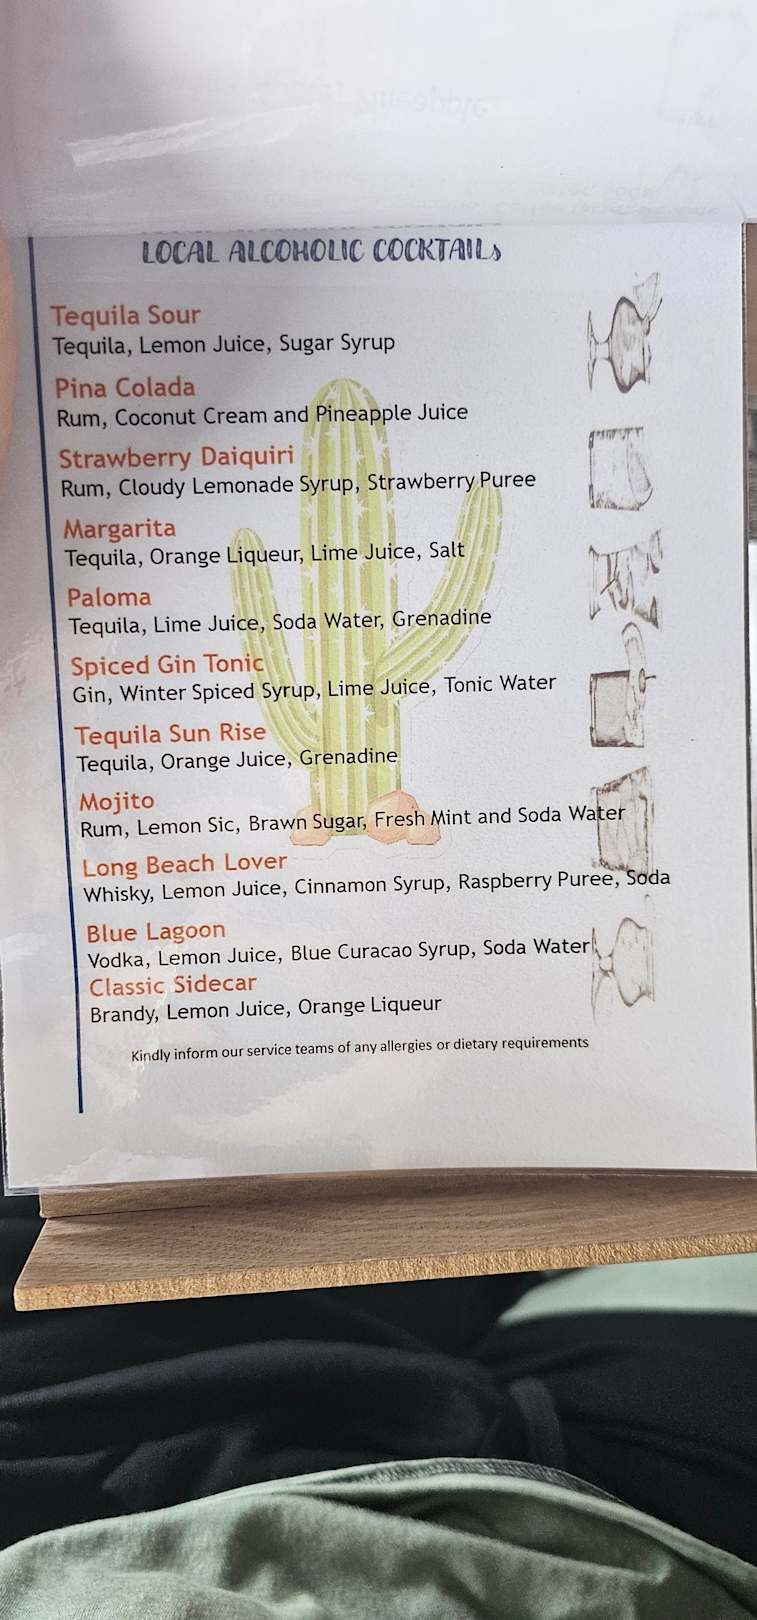 LOCAL ALCOHOLIC COCKTAILS
Tequila Sour
Tequila, Lemon Juice, Sugar Syrup
Pina Colada
Rum, Coconut Cream and Pineapple Juice
Strawberry Daiquiri
Rum, Cloudy Lemonade Syrup, Strawberry Puree
Margarita
Tequila, Orange Liqueur, Lime Juice, Salt
Paloma
Tequila, Lime Juice, Soda Water, Grenadine
Spiced Gin Tonic
Gin, Winter Spiced Syrup, Lime Juice, Tonic Water
Tequila Sun Rise
Tequila, Orange Juice, Grenadine
Mojito
Rum, Lemon Sic, Brawn Sugar, Fresh Mint and Soda Water
Long Beach Lover
Whisky, Lemon Juice, Cinnamon Syrup, Raspberry Puree, Soda
Blue Lagoon
Vodka, Lemon Juice, Blue Curacao Syrup, Soda Water
Classic Sidecar
Brandy, Lemon Juice, Orange Liqueur
Kindly inform our service teams of any allergies or dietary requirements